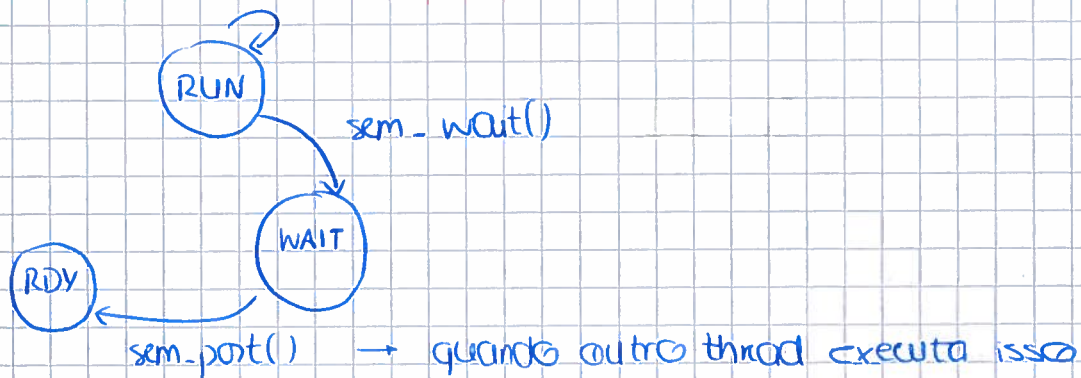 RUN
sem_wait()
WAIT
RDY
sem_post() → quando outro thread executa isso